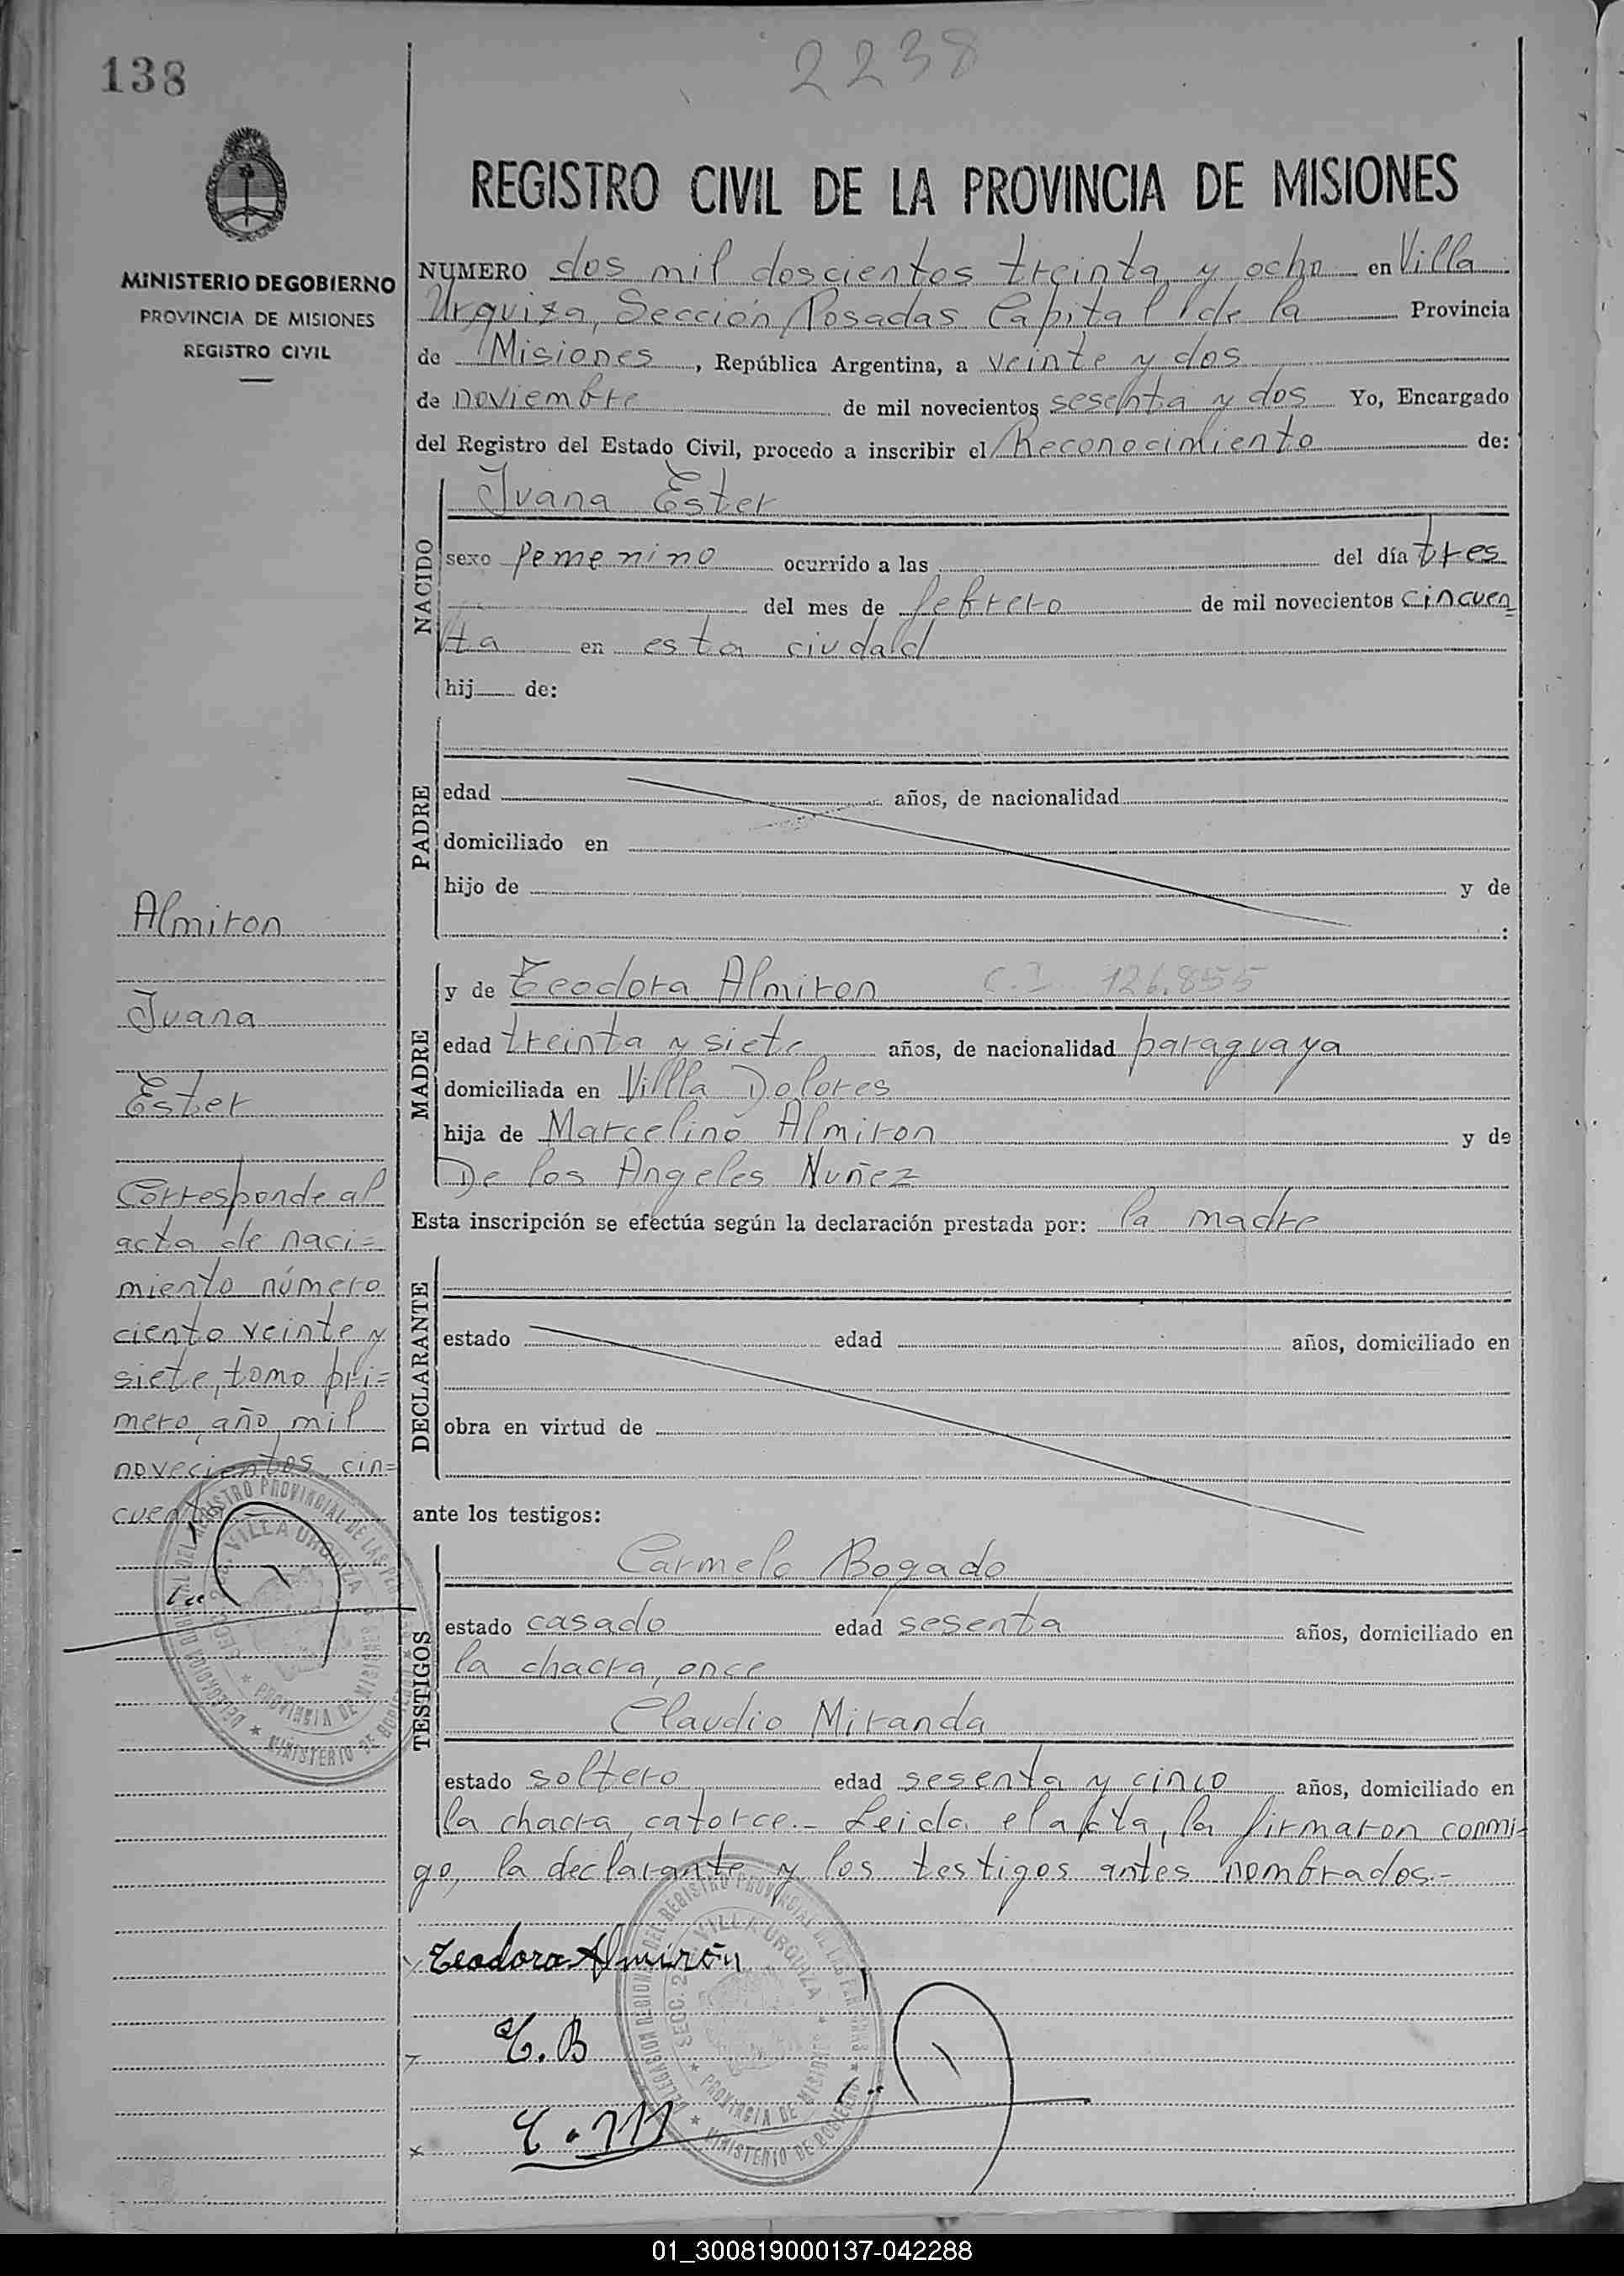 138
2238
MINISTERIO DE GOBIERNO
PROVINCIA DE MISIONES
REGISTRO CIVIL
REGISTRO CIVIL DE LA PROVINCIA DE MISIONES
NUMERO dos mil doscientos treinta y ocho en Villa
Urquiza, Sección Posadas Capital de la Provincia
de Misiones, República Argentina, a veinte y dos
de noviembre de mil novecientos sesenta y dos Yo, Encargado
del Registro del Estado Civil, procedo a inscribir el Reconocimiento de:
NACIDO
Juana Ester
sexo femenino ocurrido a las del día tres
del mes de febrero de mil novecientos cincuen=
ta en esta ciudad
hij de:
PADRE
edad años, de nacionalidad
domiciliado en
hijo de y de
:
MADRE
y de Teodora Almiron C.I 126.855
edad treinta y siete años, de nacionalidad paraguaya
domiciliada en Villla Dolores
hija de Marcelino Almiron y de
De los Angeles Nuñez
Esta inscripción se efectúa según la declaración prestada por: la madre
DECLARANTE
estado edad años, domiciliado en
obra en virtud de
ante los testigos:
TESTIGOS
Carmelo Bogado
estado casado edad sesenta años, domiciliado en
la chacra once
Claudio Miranda
estado soltero edad sesenta y cinco años, domiciliado en
la chacra catorce.- Leida el acta, la firmaron conmi=
go, la declarante y los testigos antes nombrados.-
Teodora Almirón
C.B
C.M
Almiron
Juana
Ester
Corresponde al
acta de naci=
miento número
ciento veinte y
siete, tomo pri=
mero, año mil
novecientos cin=
cuenta
DELEGACION REGIONAL DEL REGISTRO PROVINCIAL DE LAS PERSONAS
SECC. 2 VILLA URQUIZA
PROVINCIA DE MISIONES
MINISTERIO DE GOBIERNO
DELEGACION REGIONAL DEL REGISTRO PROVINCIAL DE LAS PERSONAS
SECC. 2 VILLA URQUIZA
PROVINCIA DE MISIONES
MINISTERIO DE GOBIERNO
01_300819000137-042288